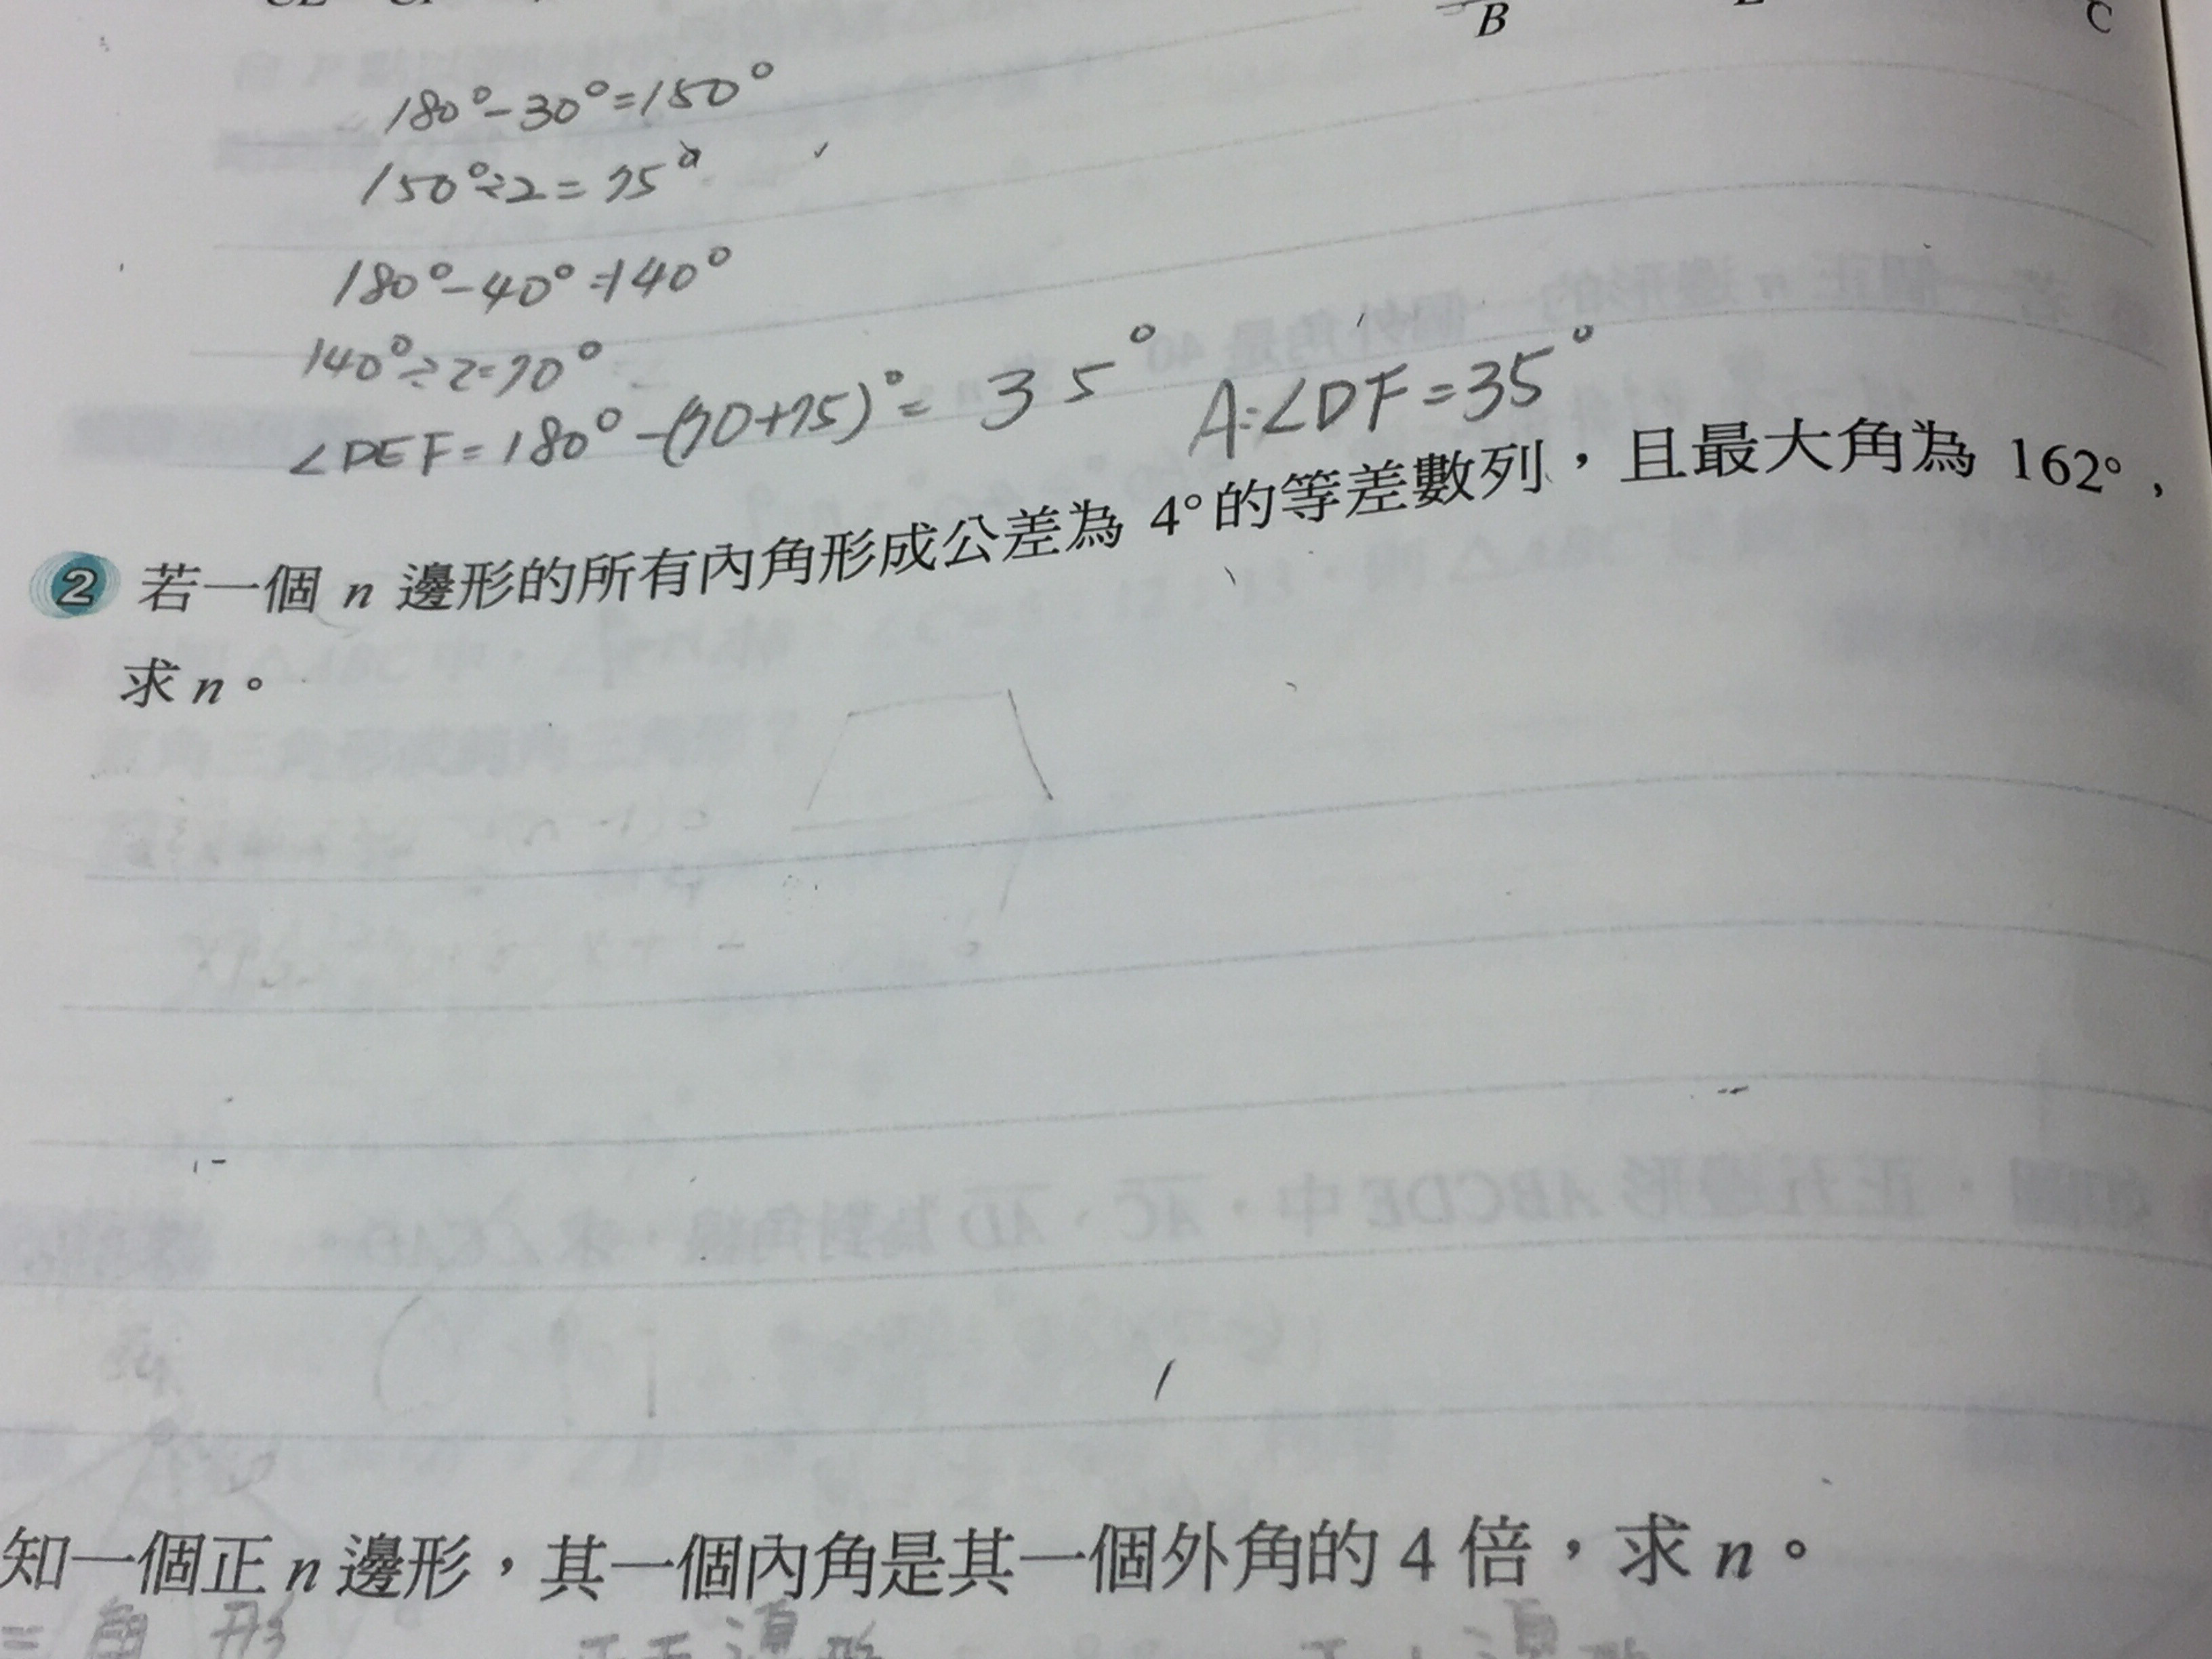 B
C
180°-30°=150°
150°÷2=75°
180°-40°=140°
140°÷2=70°
∠DEF=180°-(70+75)°=35° A:∠DF=35°
2 若一個 n 邊形的所有內角形成公差為 4°的等差數列,且最大角為 162°,
求 n。
知一個正 n 邊形,其一個內角是其一個外角的 4 倍,求 n。
三角形